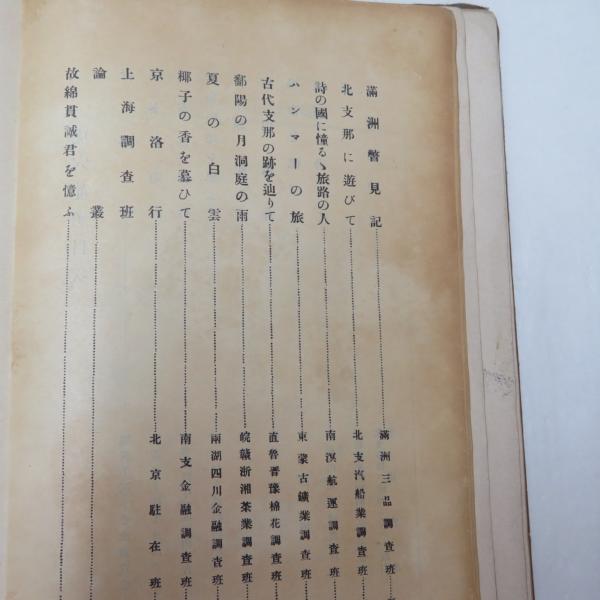 滿洲瞥見記……滿洲三品調査班
北支那に遊びて……北支汽船業調査班
詩の國に憧るゝ旅路の人……南溟航運調査班
ハンマーの旅……東蒙古鑛業調査班
古代支那の跡を辿りて……直魯晋豫棉花調査班
鄱陽の月洞庭の雨……皖贛浙湘茶業調査班
夏の白雲……兩湖四川金融調査班
椰子の香を慕ひて……南支金融調査班
京洛行……北京駐在班
上海調査班
論叢
故綿貫誠君を憶ふ……